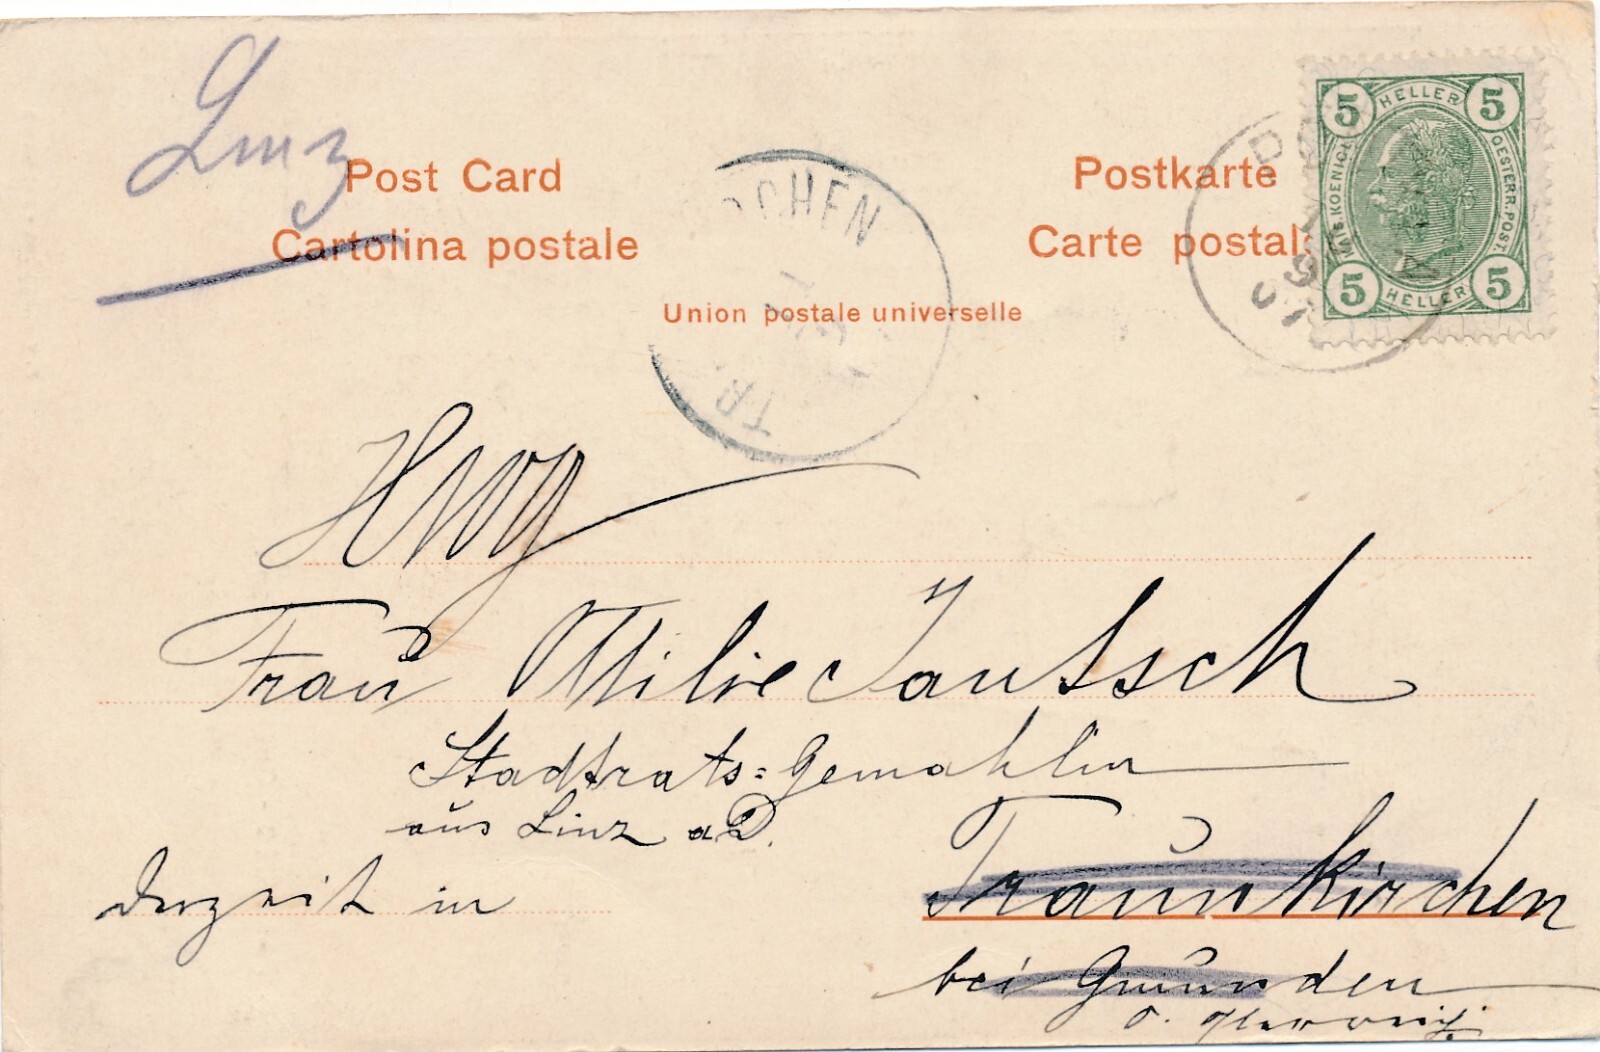 Linz
Post Card
Postkarte
Cartolina postale
Carte postale
Union postale universelle
5 HELLER 5
OESTERR.POST.
5 HELLER 5
RCHEN
TR
Frau Milie Jautsch
Stadtrats=Gemahlin
aus Linz a D.
derzeit in
Traunkirchen
bei Gmunden